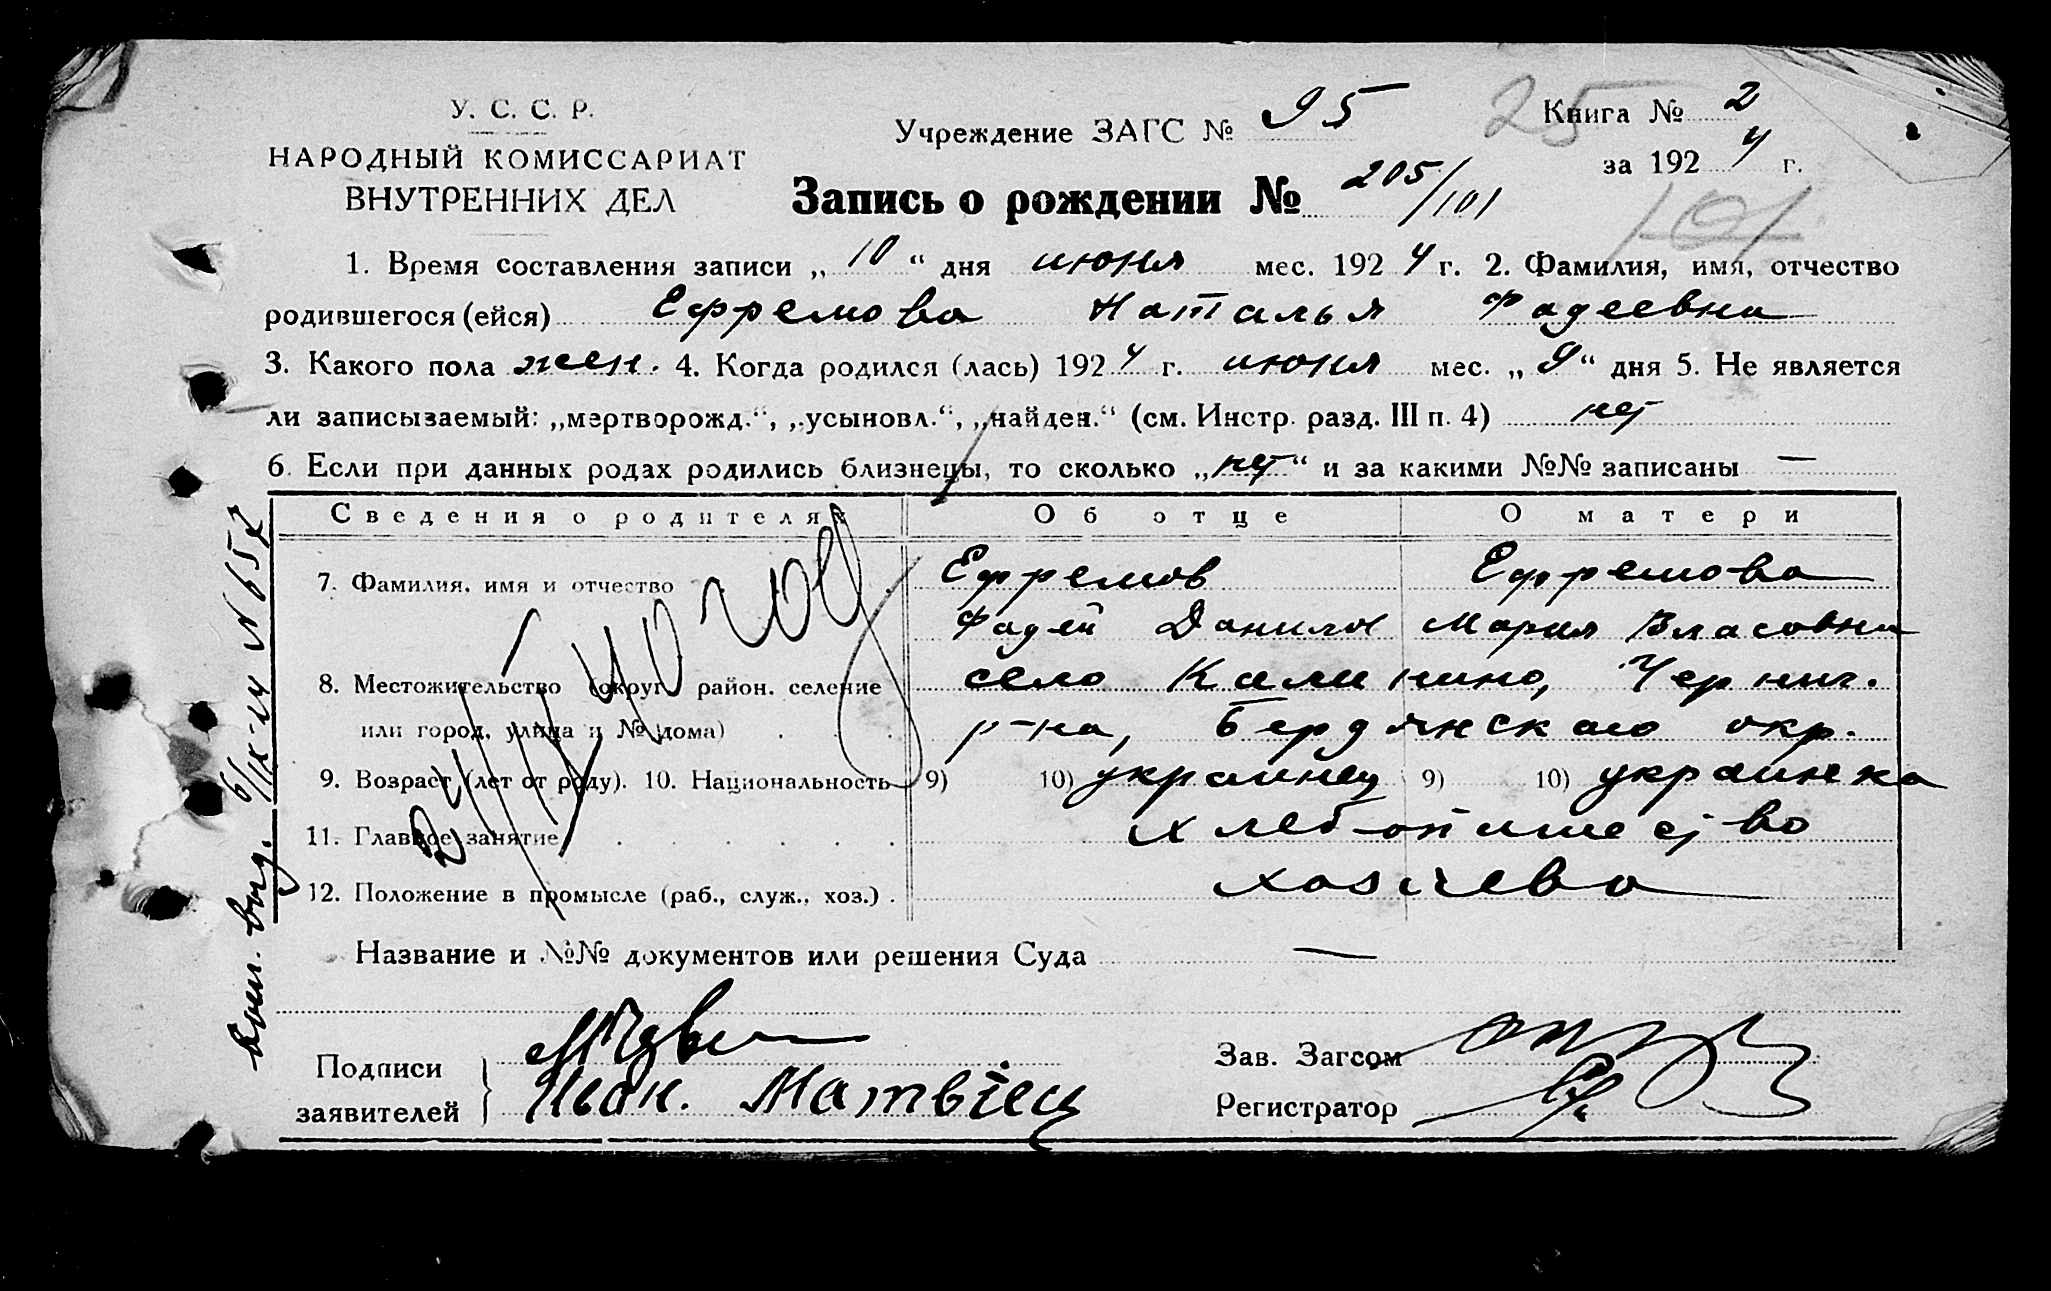 У. С. С. Р.
НАРОДНЫЙ КОМИССАРИАТ
ВНУТРЕННИХ ДЕЛ
Учреждение ЗАГС № 95
25
Книга № 2
за 1924 г.
Запись о рождении № 205/101
101
1. Время составления записи „10“ дня июня мес. 1924 г. 2. Фамилия, имя, отчество
родившегося (ейся) Ефремова Наталья Фадеевна
3. Какого пола жен. 4. Когда родился (лась) 1924 г. июня мес. „9“ дня 5. Не является
ли записываемый: „мертворожд.“, „усыновл.“, „найден.“ (см. Инстр. разд. III п. 4) нет
6. Если при данных родах родились близнецы, то сколько „нет“ и за какими №№ записаны —
Сведения о родителях Об отце О матери
7. Фамилия, имя и отчество Ефремов Ефремова
Фадей Данилов Мария Власовна
8. Местожительство (округ, район, селение село Калинино, Черниг.
или город, улица и № дома) р-на, Бердянского окр.
9. Возраст (лет от роду). 10. Национальность 9) 10) украинец 9) 10) украинка
11. Главное занятие хлебопашество
12. Положение в промысле (раб., служ., хоз.) хозяева
Название и №№ документов или решения Суда —
Подписи
заявителей
Иван. Матвіец
Зав. Загсом
Регистратор